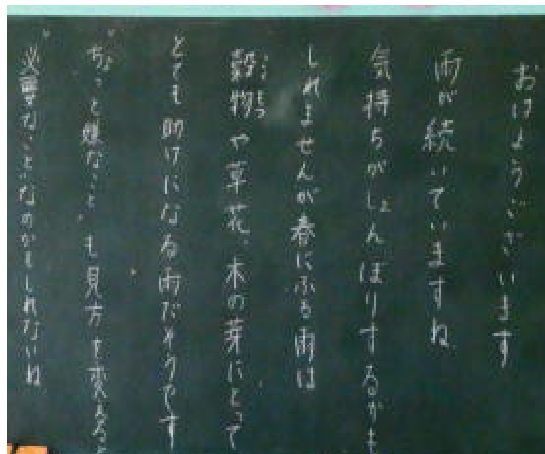 おはようございます
雨が続いていますね
気持ちがしょんぼりするかも
しれませんが春にふる雨は
穀物や草花、木の芽にとって
とても助けになる雨だそうです
"ちょっと嫌なこと"も見方を変えると
"必要なこと"なのかもしれないね